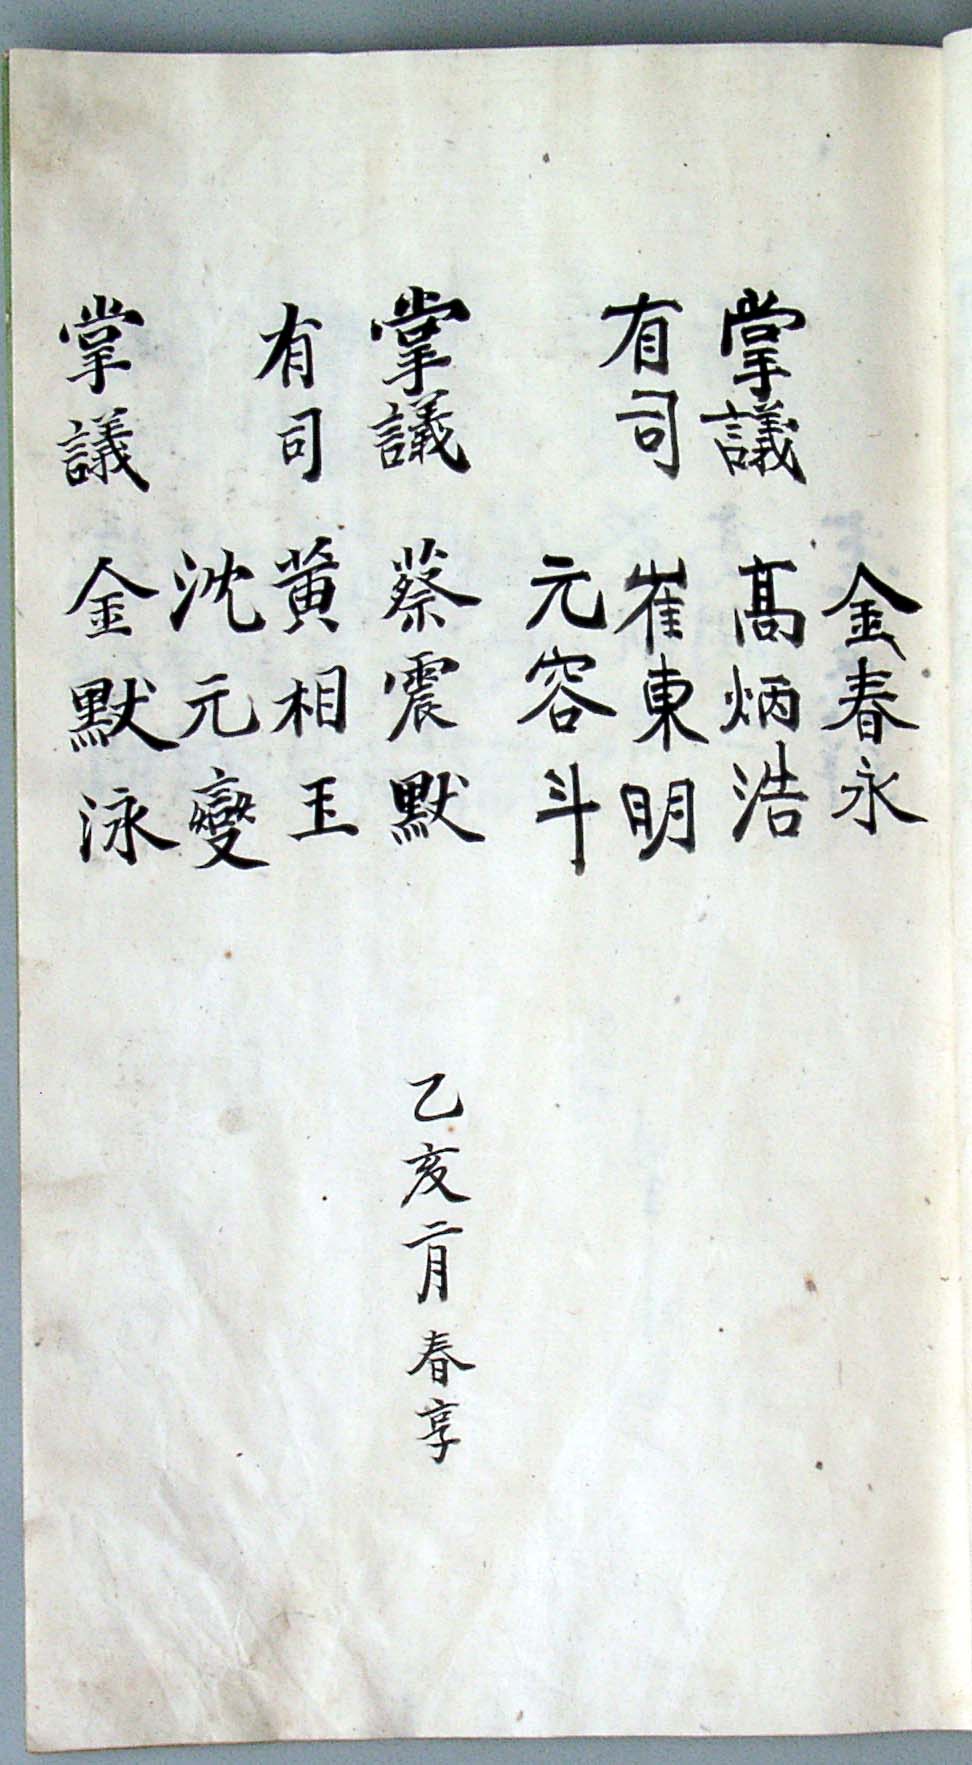 金春永
掌議 高炳浩
有司 崔東明
元容斗
掌議 蔡震默 乙亥二月春享
有司 黃相玉
沈元變
掌議 金默泳